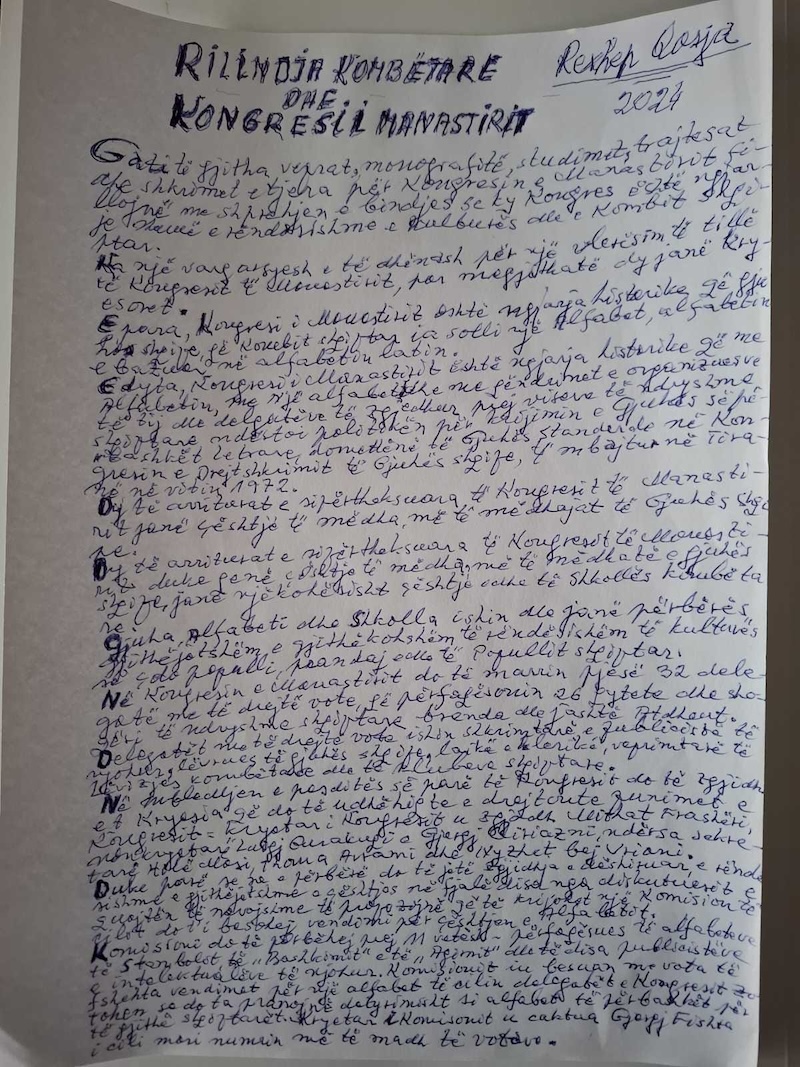 RILINDJA KOMBËTARE
DHE
KONGRESI I MANASTIRIT
Rexhep Qosja
2024
Gati të gjitha, veprat, monografitë, studimet, trajtesat
dhe shkrimet e tjera për Kongresin e Manastirit fi-
llojnë me shprehjen e bindjes se ky Kongres është ngjar-
je shumë e rëndësishme e Kulturës dhe e Kombit Shqi-
ptar.
Ka një varg arsyesh e të dhënash për një vlerësim të tillë
të Kongresit të Manastirit, por megjithatë dy janë Kry-
esoret.
E para, Kongresi i Manastirit është ngjarja historike që gju
hës shqipe, që Kombit shqiptar ia solli një Alfabet, alfabetin
e bazuar në alfabetin latin.
E dyta, Kongresi i Manastirit është ngjarja historike që me
Alfabetin, me një alfabet dhe me qëndrimet e organizuesve
të tij dhe delegatëve të zgjedhur, prej viseve të ndryshme
shqiptare ndërtoi politikën për krijimin e Gjuhës së për-
bashkët letrare, domethënë të Gjuhës standarde në Kon-
gresin e Drejtshkrimit të Gjuhës shqipe, të mbajtur në Tira-
në në vitin 1972.
Dy të arriturat e sipërtheksuara të Kongresit të Manasti-
rit janë çështje të mëdha, më të mëdhajat të Gjuhës shqi
pe.
Dy të arriturat e sipërtheksuara të Kongresit të Manasti-
rit, duke qenë çështje të mëdha, më të mëdhatë e gjuhës
shqipe, janë njëkohësisht çështje edhe të Shkollës kombëta
re.
Gjuha, Alfabeti dhe Shkolla ishin dhe janë përbërës
gjithëjetshëm e gjithëkohshëm të rëndësishëm të kulturës
së çdo populli, prandaj edhe të Popullit shqiptar.
Në Kongresin e Manastirit do të marrin pjesë 32 dele-
gatë me të drejtë vote, që përfaqësonin 26 qytete dhe sho-
qëri të ndryshme shqiptare brenda dhe jashtë Atdheut.
Delegatët me të drejtë vote ishin shkrimtarë, e publicistë të
njohur, lëvrues të gjuhës shqipe, laikë e klerikë, veprimtarë të
lëvizjes kombëtare dhe të Klubeve shqiptare.
Në Mbledhjen e pasditës së parë të Kongresit do të zgjidh
et Kryesia që do të udhëhiqte e drejtonte punimet e
Kongresit - Kryetar i Kongresit u zgjodh Mithat Frashëri,
nënkryetarë Luigj Gurakuqi e Gjergj Qiriazi, ndërsa sekre-
tarë Hilë Mosi, Thoma Avrami dhe Nyzhet bej Vrioni.
Duke parë se ne e përbërë do të jetë zgjidhja e dëshiruar, e rënde
sishme e gjithëjetshme e çështjes në fjalë disa nga diskutuesit e
quajtën të nevojshme të propozojnë që të krijohet një Komision të
cilit do t'i besohej vendimi për çështjen e Alfabetit.
Komisioni do të përbëhej prej 11 vetësh - përfaqësues të alfabeteve
të Stambolit të "Bashkimit" e të "Agimit" dhe të disa publicistëve
e intelektualëve të njohur. Komisionit iu besuan me vota të
fshehta vendimet për një alfabet të cilin delegatët e Kongresit zo
tohen se do ta pranojnë detyrimisht si alfabet të përbashkët për
të gjithë shqiptarët. Kryetar i Komisonit u caktua Gjergj Fishta
i cili mori numrin më të madh të votave.